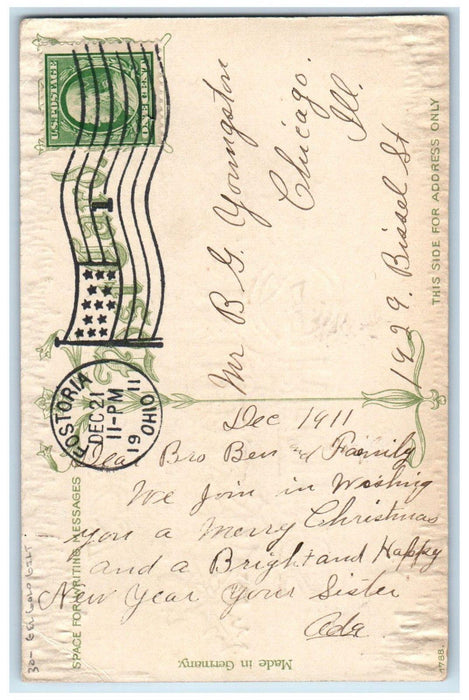 U.S. POSTAGE
ONE CENT
1
FOSTORIA
DEC 21
11-PM
19 11
OHIO
Mr B. G. Youngston
Chicago.
Ill.
1929. Bissel St
THIS SIDE FOR ADDRESS ONLY
SPACE FOR WRITING MESSAGES
Dec 1911
Dear Bro Ben and Family
We Join in Wishing
you a Merry Christmas
and a Bright and Happy
New Year Your Sister
Ada
Made in Germany.
1788.